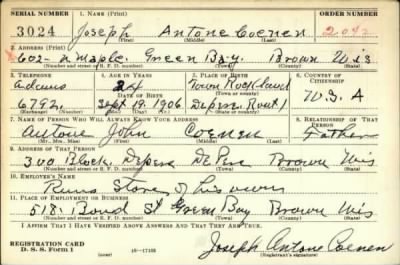 SERIAL NUMBER 1. NAME (Print) ORDER NUMBER
3024 Joseph Antone Coenen
(First) (Middle) (Last)
2. ADDRESS (Print)
602- N Maple. Green Bay. Brown Wis
(Number and street or R. F. D. number) (Town) (County) (State)
3. TELEPHONE 4. AGE IN YEARS 5. PLACE OF BIRTH 6. COUNTRY OF CITIZENSHIP
Adams
DATE OF BIRTH (Town or county)
6792. Sept 19. 1906 Depere Rout 1 U.S.A
(Exchange) (Number) (Mo.) (Day) (Yr.) (State or country)
7. NAME OF PERSON WHO WILL ALWAYS KNOW YOUR ADDRESS 8. RELATIONSHIP OF THAT PERSON
Antone John Coenen Father
(Mr., Mrs., Miss) (First) (Middle) (Last)
9. ADDRESS OF THAT PERSON
300 Block. Depere De Pere Brown Wis
(Number and street or R. F. D. number) (Town) (County) (State)
10. EMPLOYER'S NAME
Runs Store of his own
11. PLACE OF EMPLOYMENT OR BUSINESS
518- Bond St Green Bay Brown Wis
(Number and street or R. F. D. number) (Town) (County) (State)
I AFFIRM THAT I HAVE VERIFIED ABOVE ANSWERS AND THAT THEY ARE TRUE.
REGISTRATION CARD
D. S. S. Form 1 (over) 16-17105
Joseph Antone Coenen
(Registrant's signature)